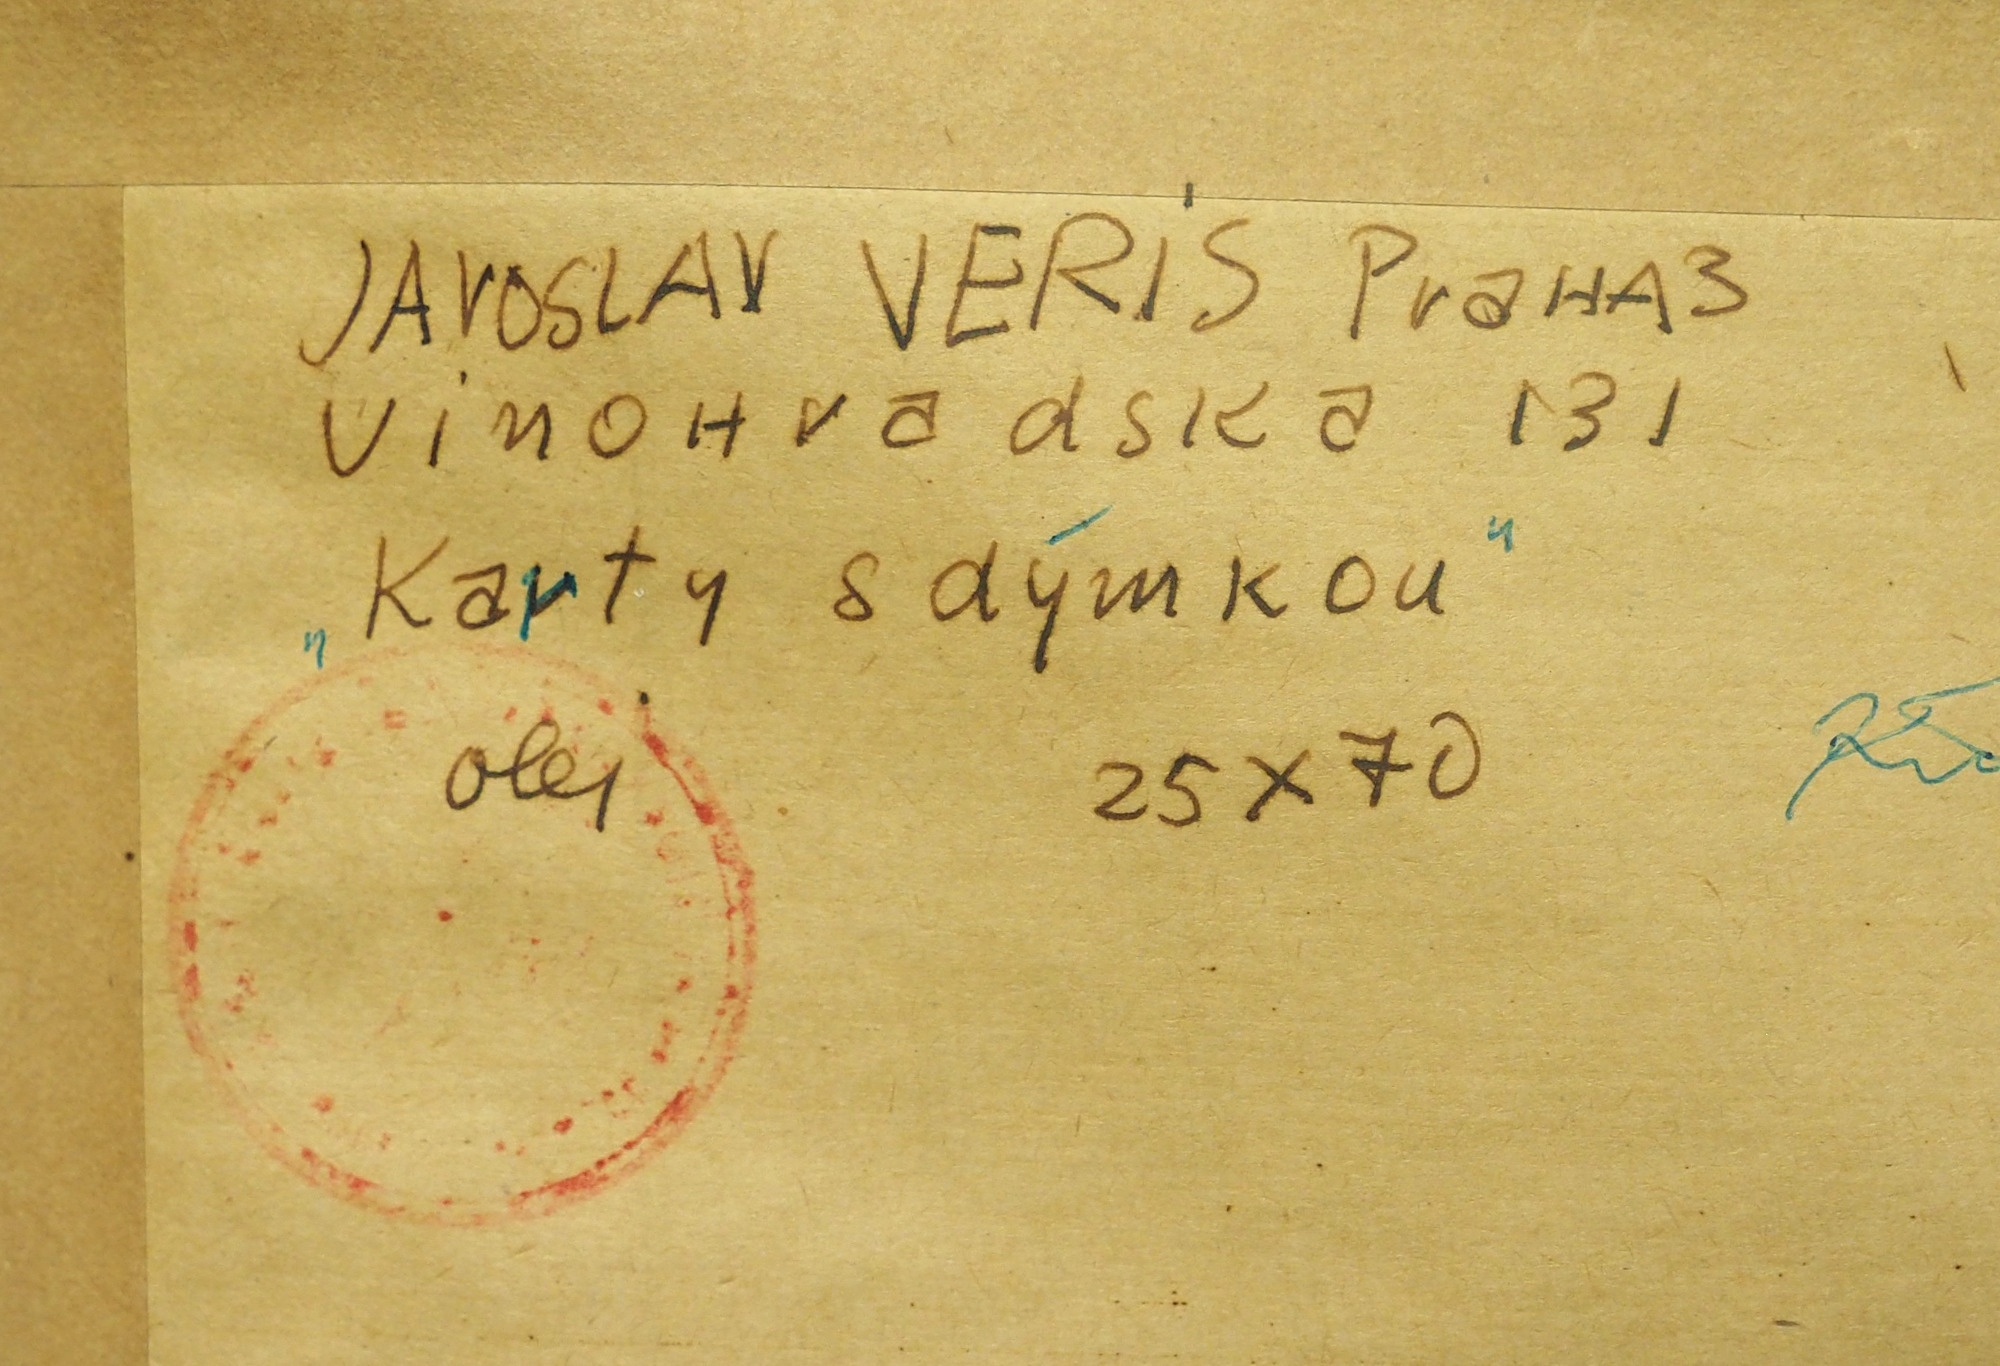 JAroSLAV VERIS PraHA3
vinoHradska 131
„Karty s dýmkou"
olej 25x70